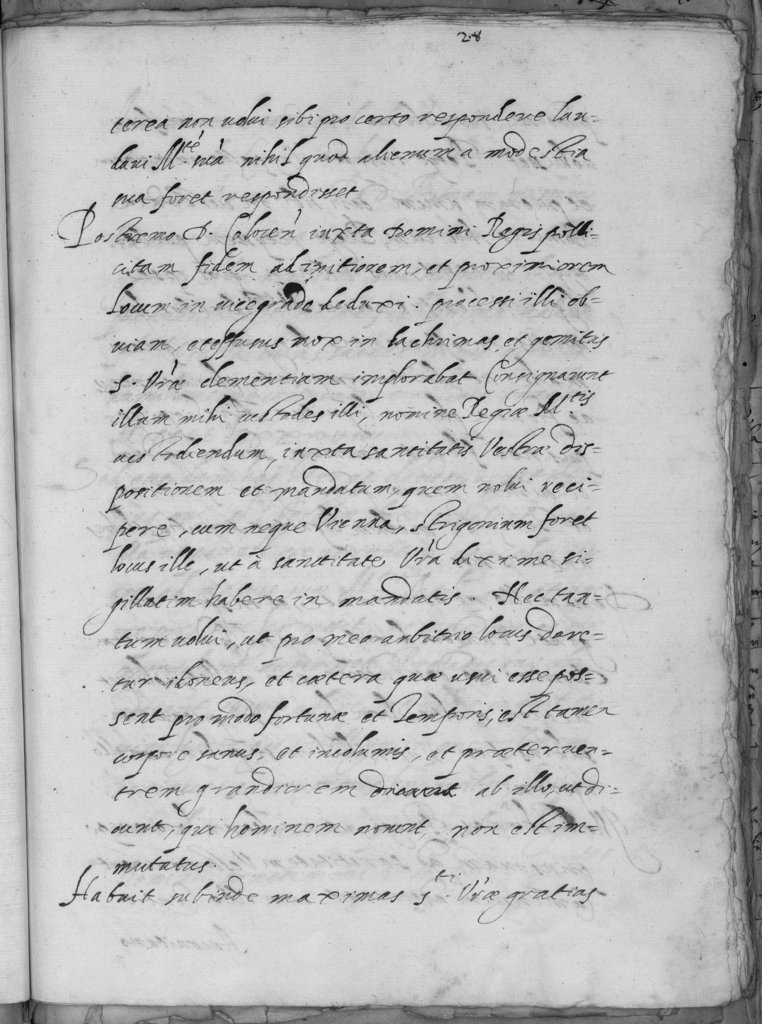 28
terea non uolui sibi pro certo respondere lau-
daui M.té suā nihil quod alienum a modestia
sua foret respondisset
Postremo D. Colocen̄ iuxta Domini Regis polli-
citam fidem ad initiorem, et proximiorem
Locum in uicegrade deduxi. processi illi ob-
uiam, et effusus mox in lachrimas, et gemitus
S. Vr̄æ clementiam implorabat Consignarunt
illum mihi custodes illi, nomine Regiæ M.tis
custodiendum, iuxta sanctitatis Vestræ dis-
positionem et mandatum, quem nolui reci-
pere, cum neque Vienna, strigonium foret
locus ille, ut à sanctitate Vr̄a dixi me si-
gillatim habere in mandatis. Hec tan-
tum uolui, ut pro meo arbitrio locus dare-
tur idoneus, et cætera quæ usui esse pos-
sent pro modo fortunæ et Temporis, est tamen
corpore sanus, et incolumis, et præter uen-
trem grandiorem ab illo, ut di-
cunt, qui hominem norunt, non est im-
mutatus.
Habuit subinde maximas S.ti Vr̄æ gratias